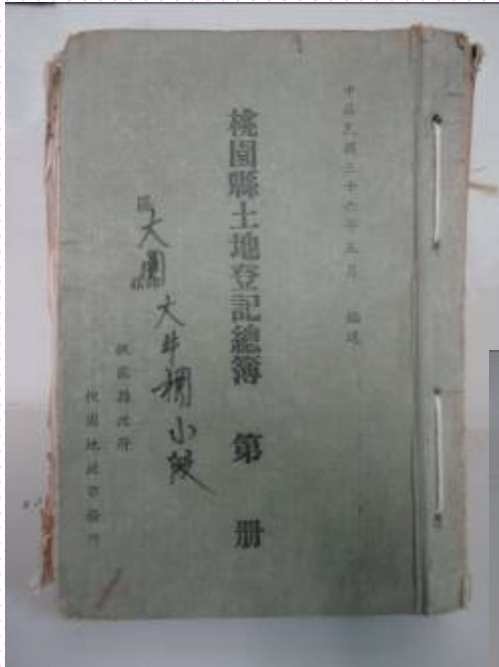 中華民國三十六年五月 編造
桃園縣土地登記總簿 第 冊
區大園 大牛欄小段
桃園縣政府
桃園地政事務所